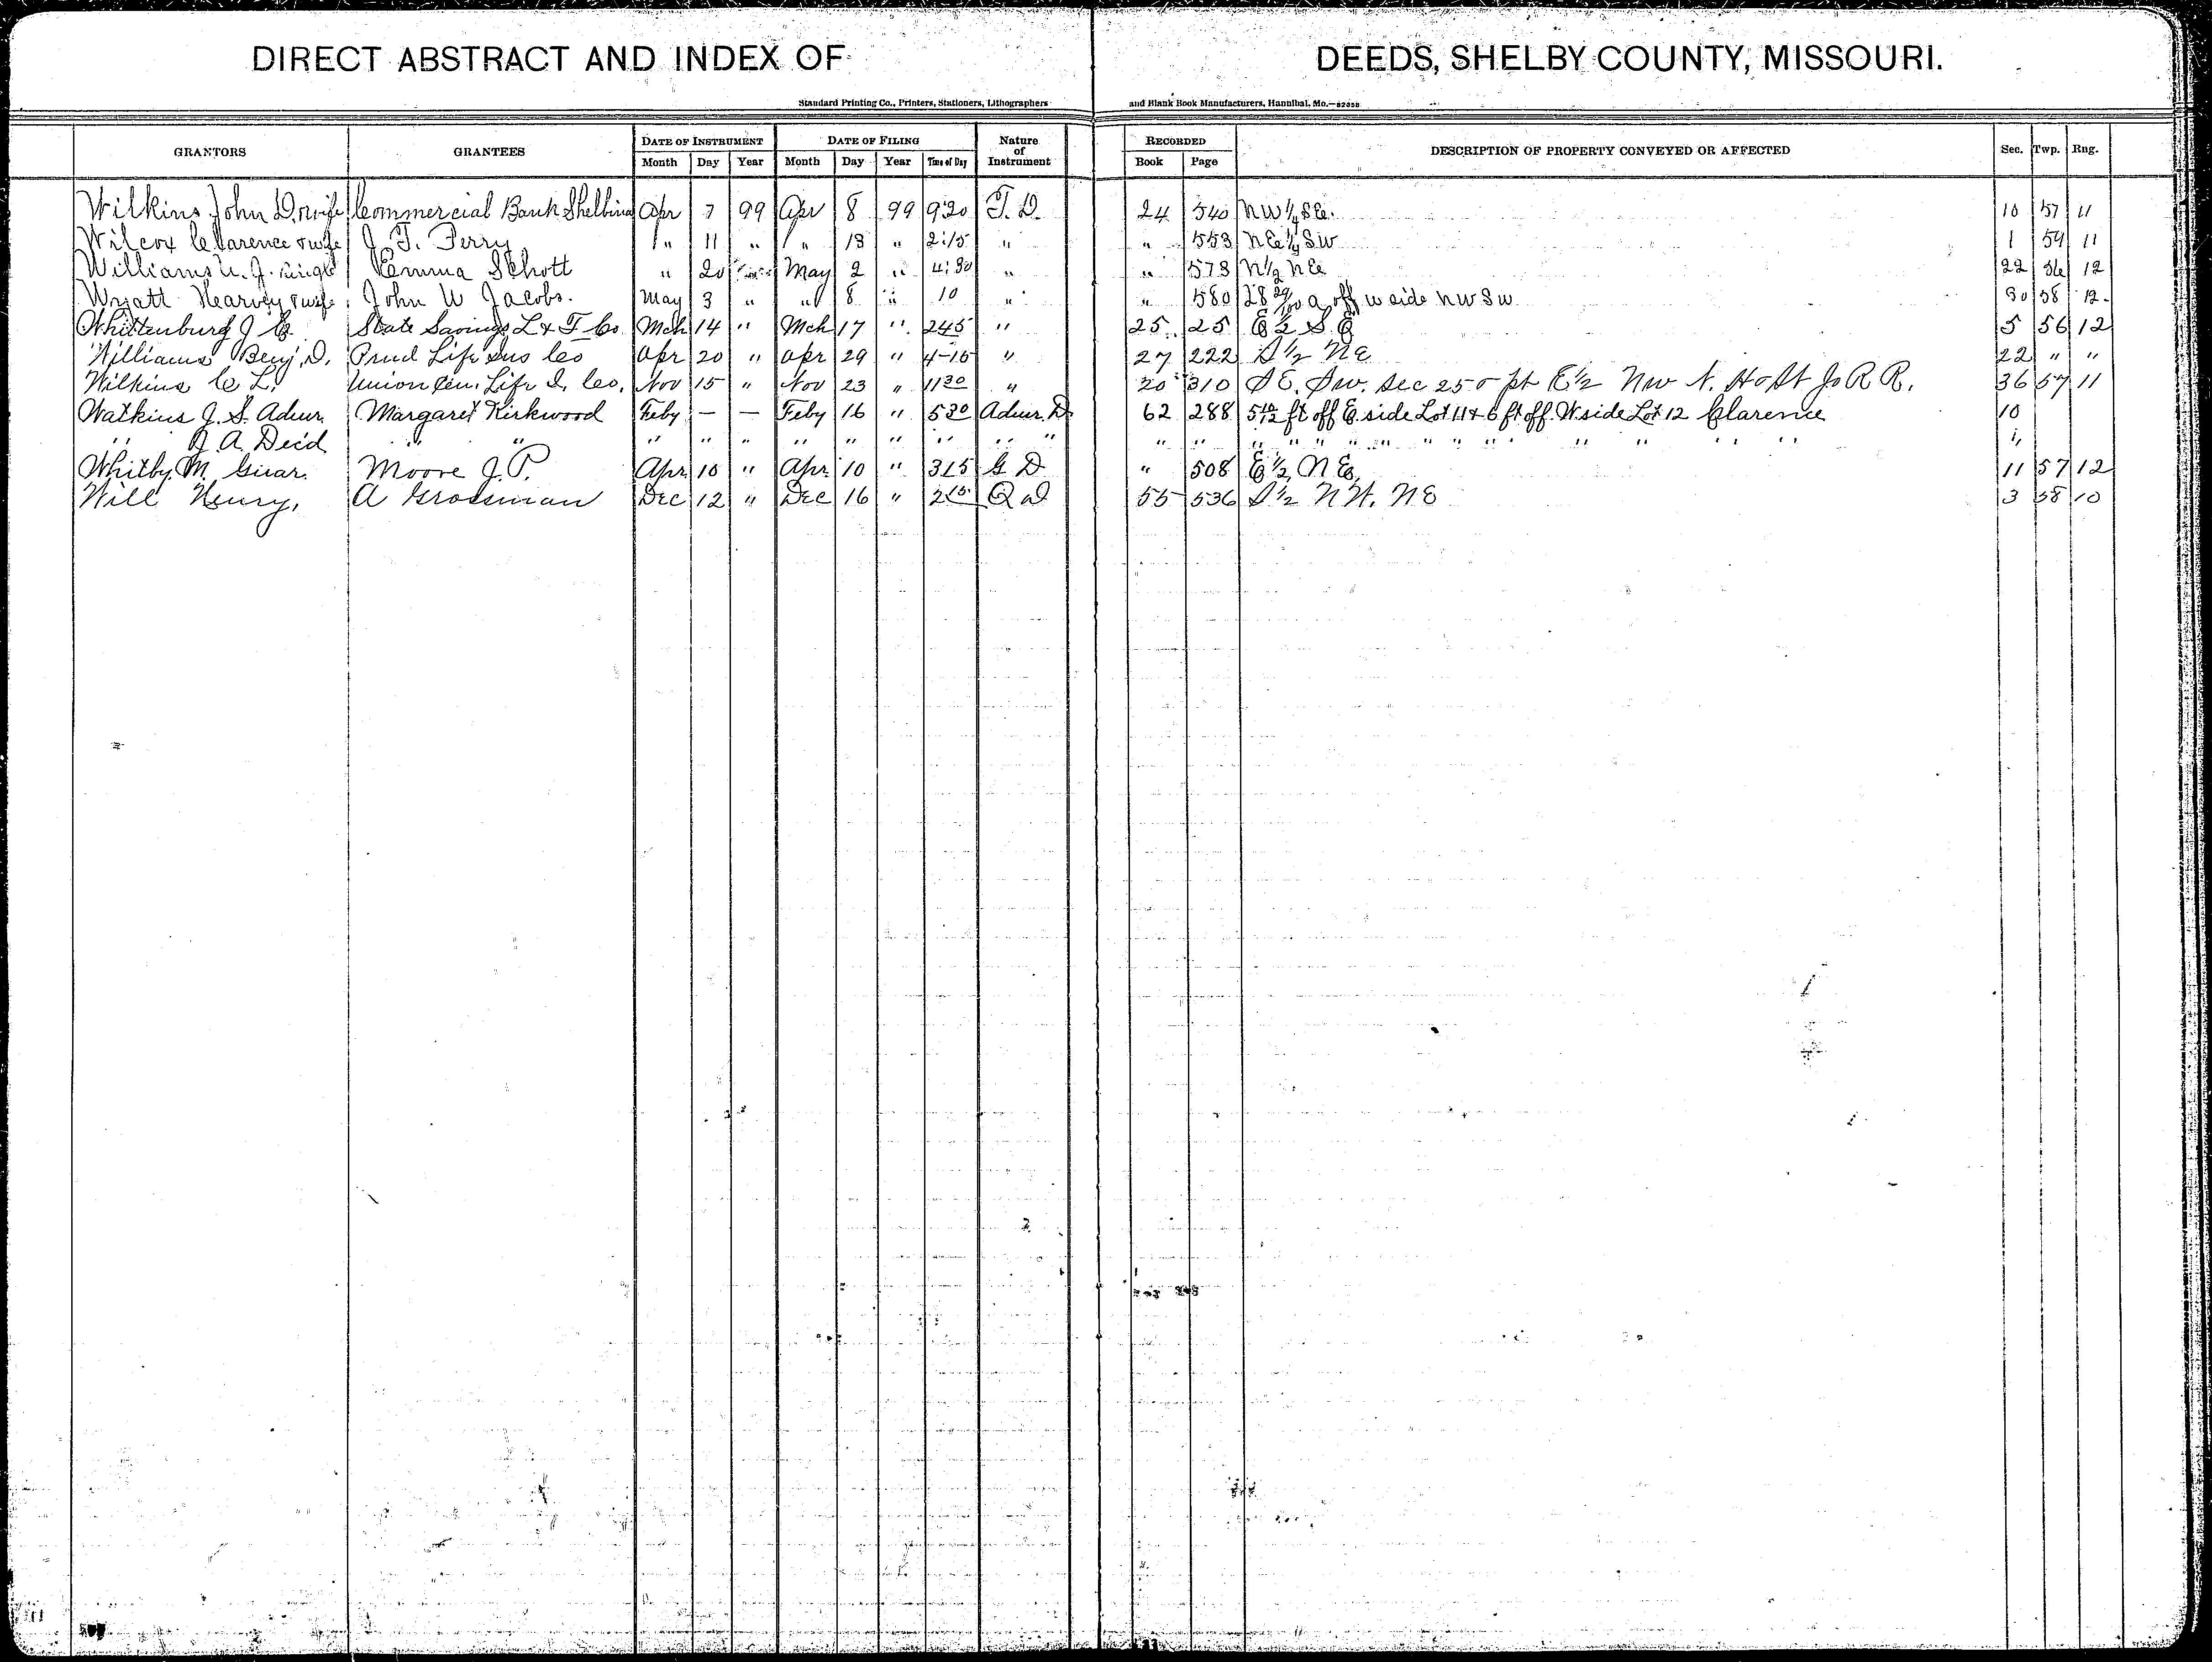 DIRECT ABSTRACT AND INDEX OF DEEDS, SHELBY COUNTY, MISSOURI.
Standard Printing Co., Printers, Stationers, Lithographers and Blank Book Manufacturers, Hannibal, Mo.
GRANTORS GRANTEES DATE OF INSTRUMENT DATE OF FILING Nature of Instrument RECORDED DESCRIPTION OF PROPERTY CONVEYED OR AFFECTED Sec. Twp. Rng.
Month Day Year Month Day Year Time of Day Book Page
Wilkins John D & wife Commercial Bank Shelbina Apr 7 99 Apr 8 99 9:20 T. D. 24 540 NW 1/4 SE. 10 57 11
Wilcox Clarence & wife J. T. Perry " 11 " " 13 " 2:15 " " 553 NE 1/4 SW 1 59 11
Williams J. single Emma Schott " 20 May 2 " 4:30 " " 573 N 1/2 NE 22 56 12
Wyatt Harvey & wife John W Jacobs. May 3 " " 8 " 10 " " 580 28 a off W side NW SW 30 58 12
Whittenburg J. C. State Savings L & T Co Mch 14 " Mch 17 " 245 " 25 25 E 1/2 S E 5 56 12
Williams Benj. D. Prud Life Ins Co Apr 20 " Apr 29 " 4-15 " 27 222 S 1/2 NE 22 " "
Wilkins C L. Union Cen. Life I. Co. Nov 15 " Nov 23 " 1130 " 20 310 SE. SW. Sec 25 & pt E 1/2 NW N. H & St Jo R R. 36 57 11
Watkins J. S. Admr. Margaret Kirkwood Feby — — Feby 16 " 530 Admr. D 62 288 5 ft off E. side Lot 11 & 6 ft off W. side Lot 12 Clarence 10
" J A. Dec'd " " " " " " " " " " " " " " " " " " " " " " " " " " "
Whitby M. Guar. Moore J. P. Apr 10 " Apr 10 " 315 G D " 508 E 1/2 NE 11 57 12
Will Henry, A Grossman Dec 12 " Dec 16 " 215 Q D 55 536 S 1/2 N W. NE 3 58 10